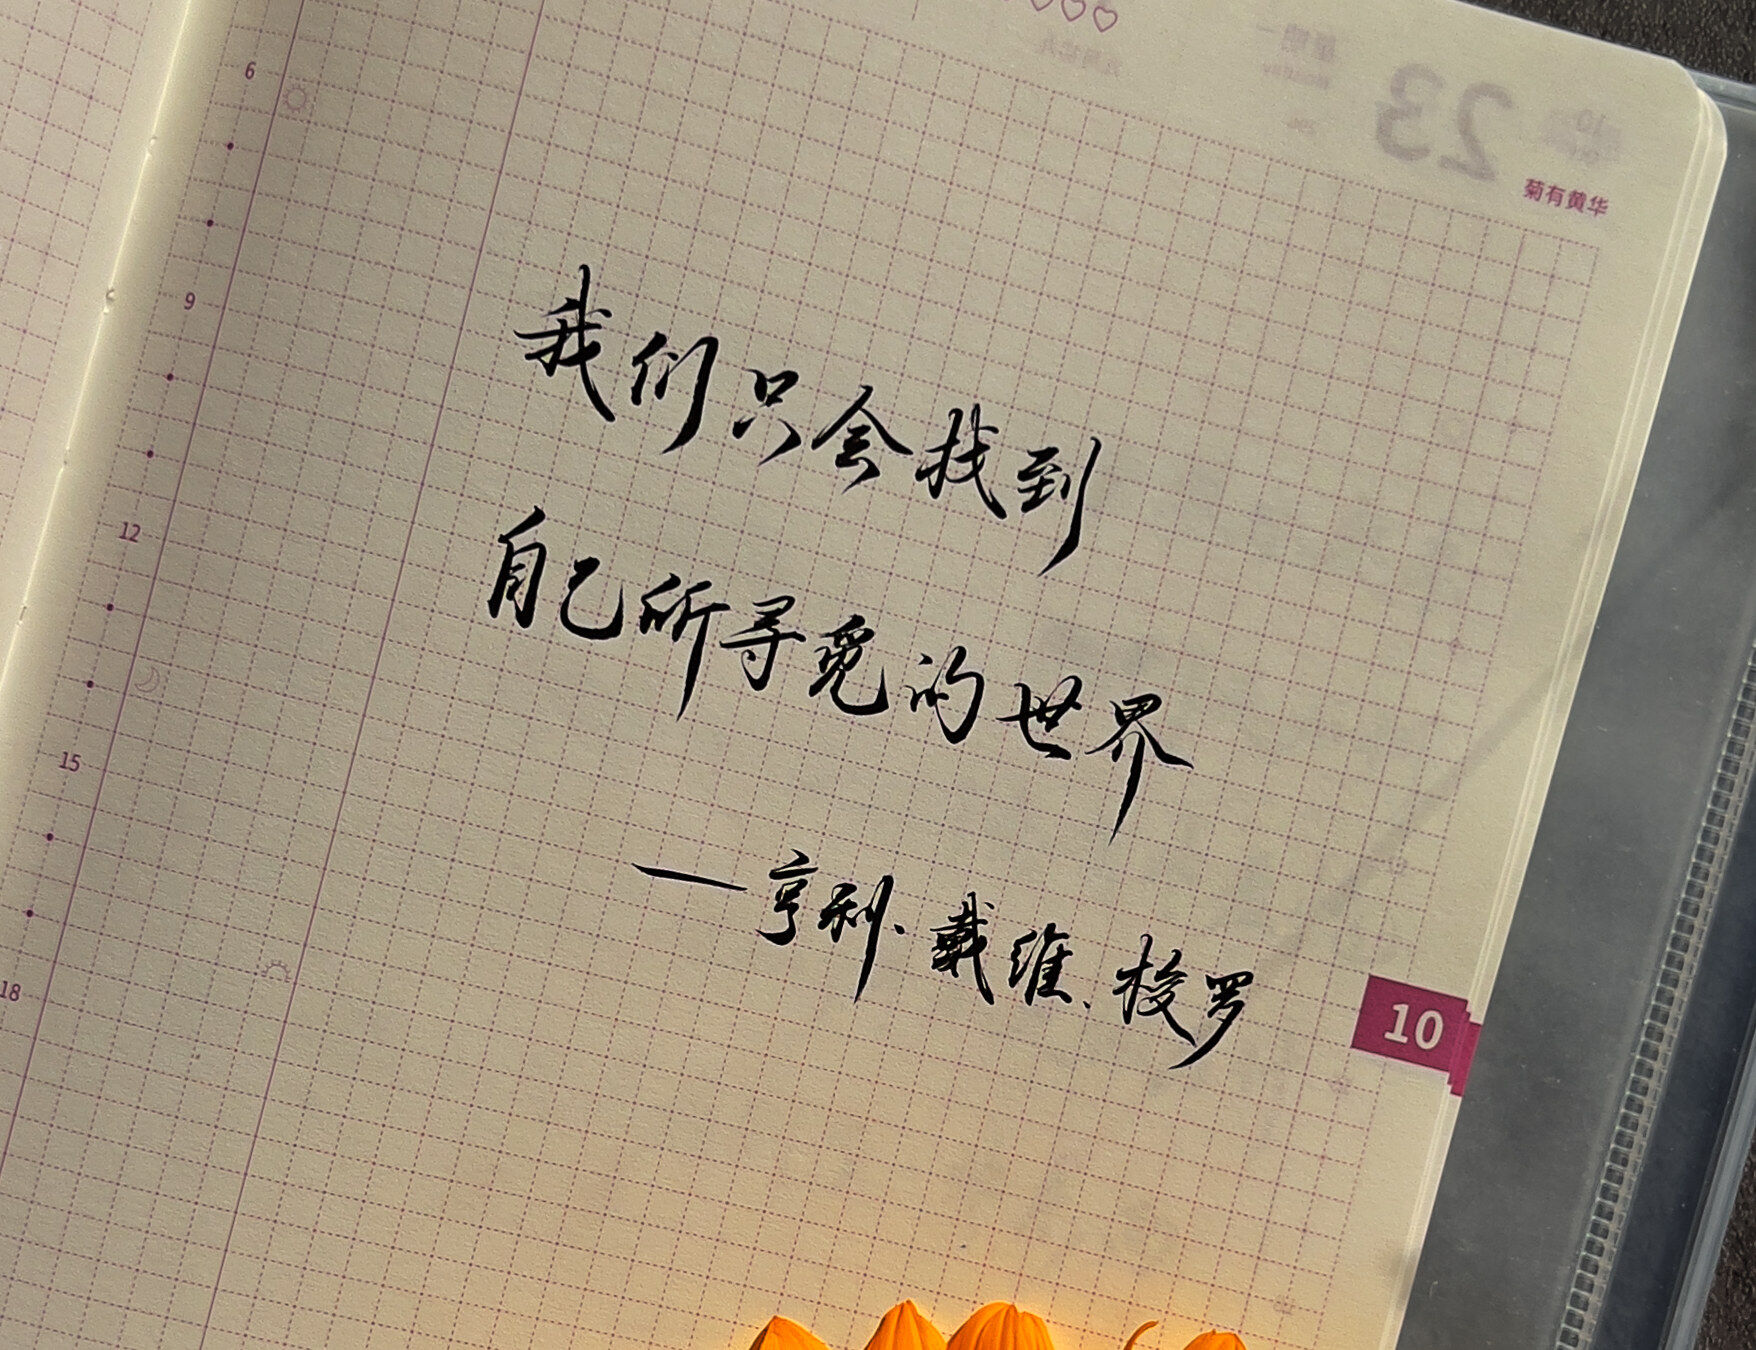 菊有黄华
6
9
12
15
18
我们只会找到
自己所寻觅的世界
—亨利·戴维·梭罗
10